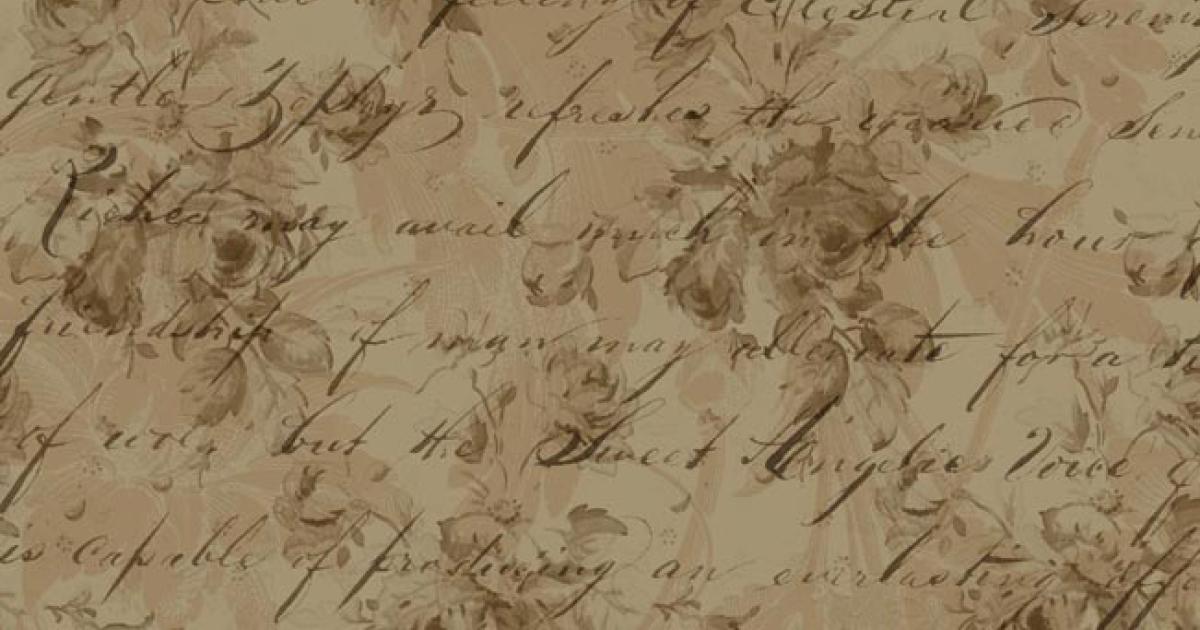 feeling of Celestial Seren
Gentle Zephyr refreshes the wearied Sen
Riches may avail much in the hour
friendship of man may alleviate for a
of woe, but the Sweet Angelic Voice
is capable of producing an everlasting